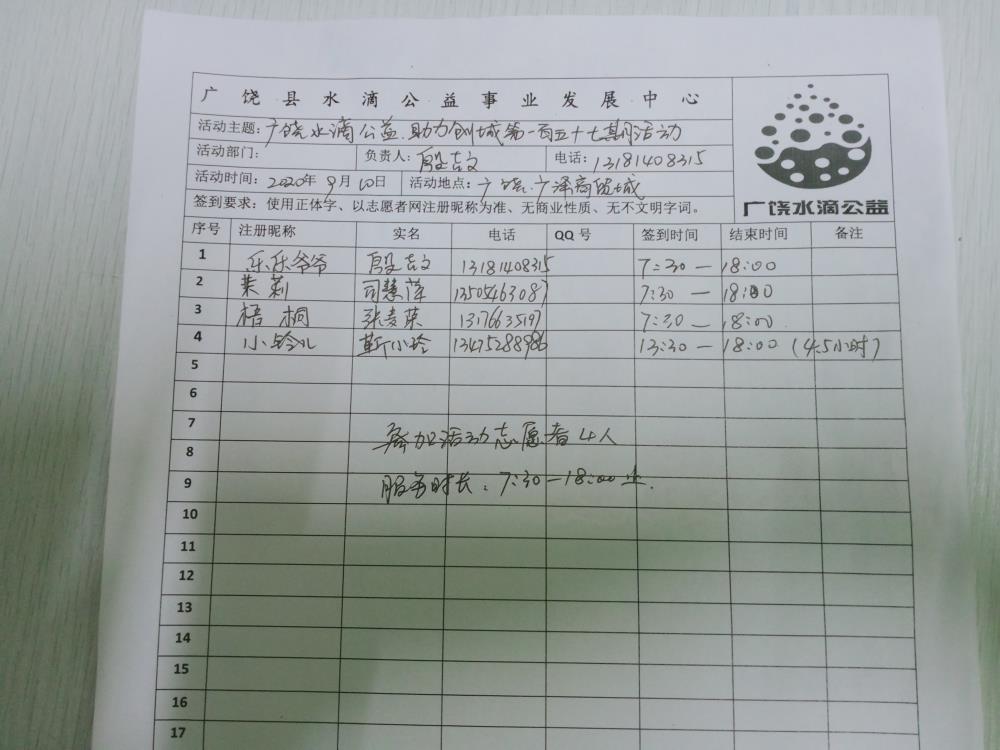 广饶县水滴公益事业发展中心
活动主题：广饶水滴公益.助力创城第一百五十七期活动
活动部门： 负责人：殷吉文 电话：13181408315
活动时间：2020年9月10日 活动地点：广饶.广泽商贸城
签到要求：使用正体字、以志愿者网注册昵称为准、无商业性质、无不文明字词。
广饶水滴公益
序号 注册昵称 实名 电话 QQ号 签到时间 结束时间 备注
1 乐乐爷爷 殷吉文 13181408315 7:30 — 18:00
2 茉莉 司慧萍 13505463087 7:30 — 18:00
3 梧桐 张麦荣 13176635197 7:30 — 18:00
4 小铃儿 靳小玲 13475288986 13:30 — 18:00 (4.5小时)
5
6
7
参加活动志愿者4人
8
9
服务时长：7:30—18:00止.
10
11
12
13
14
15
16
17